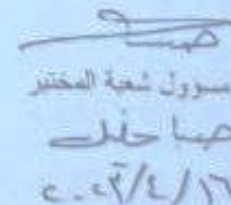 مسؤول شعبة المختبر
صبا حفلت
٢٠٢٣/٤/١٦